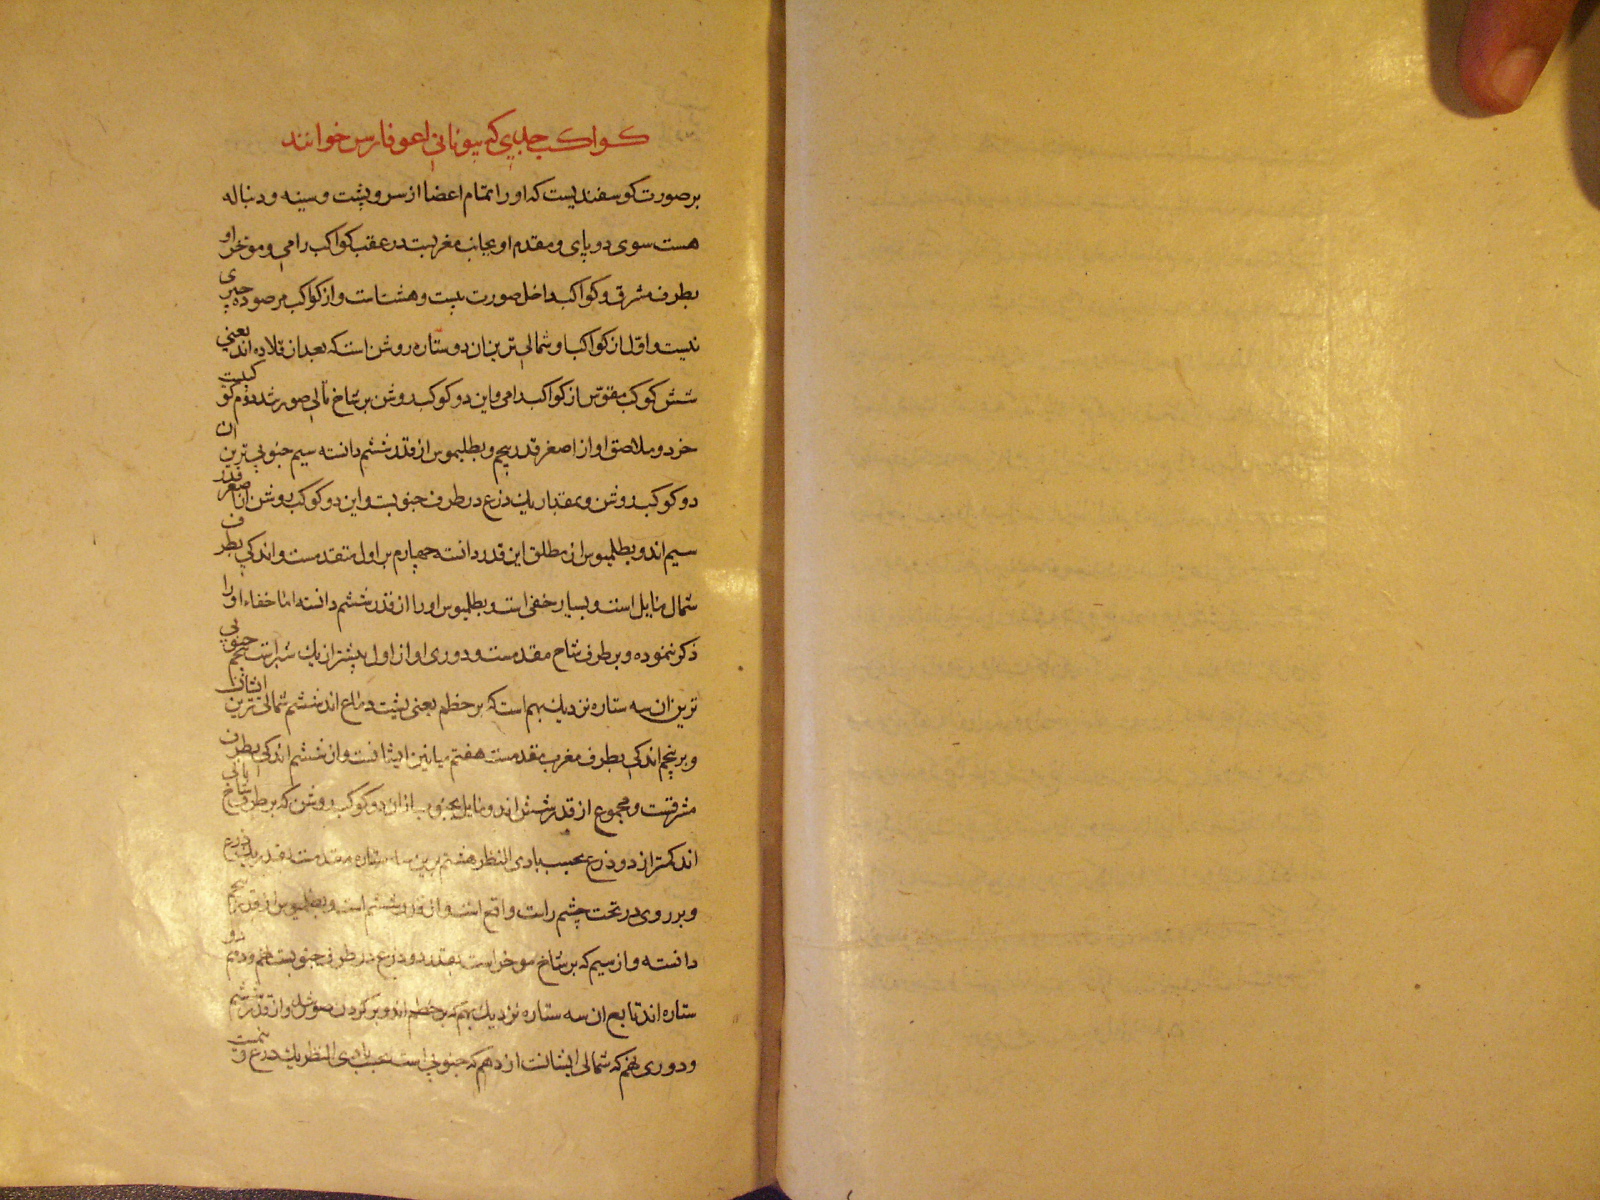 كواكب جدي كه بيوناني اعوفارس خوانند
برصورت كوسفنديست كه اورا تمام اعضا از سر و پشت و سينه و دنباله
هست سوى دو پاى و مقدم او بجانب مغربست در عقب كواكب رامي و موخر او
بطرف مشرق و كواكب داخل صورت بيست و هشت است و از كواكب مرصوده چيزى
نيست و اول از كواكب او شمالي ترين ان دو ستاره روشن است كه بعد از قلاده اند يعني
شش كوكب مقوس از كواكب رامي و اين دو كوكب روشن بر شاخ تالي صورتند دوم كوكبيست
خرد و ملاصق او از اصغر قدر پنجم و بطلميوس از قدر ششم دانسته سيم جنوبي ترين ان
دو كوكب روشن و بمقدار يك ذرع در طرف جنوبست و اين دو كوكب روشن از اصغر قدر
سيم اند و بطلميوس از مطلق اين قدر دانسته چهارم بر اول متقدمست و اندكي بطرف
شمال مايل است و بسيار خفي است و بطلميوس او را از قدر ششم دانسته اما خفاء او را
ذكر ننموده و بر طرف شاخ مقدمست و دورى او از اول بيشتر از يك شبر است پنجم جنوبي
ترين ان سه ستاره نزديك بهم است كه بر خطم يعني پشت دماغ اند ششم شمالي ترين ايشان
و بر پنجم اندكي بطرف مغرب مقدمست هفتم ميانين ايشانست و از ششم اندكي بطرف
مشرقست و مجموع از قدر شش اند و مايل بجنوب از ان دو كوكب روشن كه بر طرف شاخ تالي
اند كمتر از دو ذرع بحسب بادى النظر هشتم برين سه ستاره مقدمست بقدر يك ذرع
و بر روى در تحت چشم راست واقع است و از قدر ششم است و بطلميوس از قدر پنجم
دانسته و از سيم كه بر شاخ موخر است بقدر دو ذرع در طرف جنوبست نهم و دهم دو
ستاره اند تابع ان سه ستاره نزديك بهم كه بر خطم اند و بر كردن صورتند و از قدر ششم
و دورى نهم كه شمالي ايشانست از دهم كه جنوبي است بحسب بادى النظر يك ذرع و